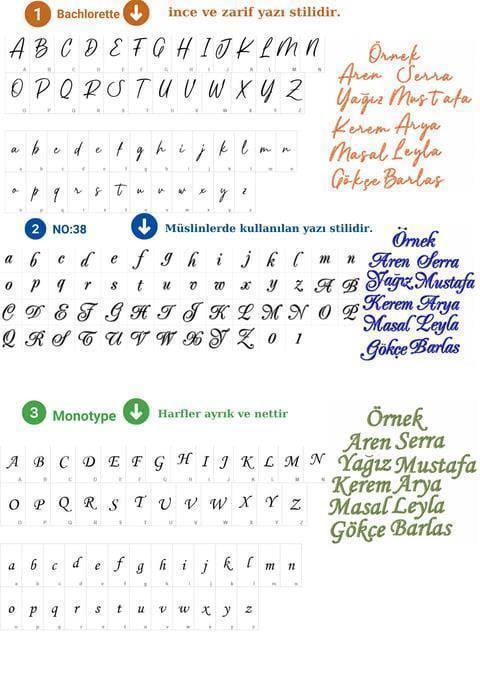 1 Bachlorette ince ve zarif yazı stilidir.
A B C D E F G H I J K L M N
O P Q R S T U V W X Y Z
a b c d e f g h i j k l m n
o p q r s t u v w x y z
Örnek
Aren Serra
Yağız Mustafa
Kerem Arya
Masal Leyla
Gökçe Barlas
2 NO:38 Müslinlerde kullanılan yazı stilidir.
a b c d e f g h i j k l m n
o p q r s t u v w x y z A B
C D E F G H I J K L M N O P
Q R S T U V W X Y Z 0 1
Örnek
Aren Serra
Yağız Mustafa
Kerem Arya
Masal Leyla
Gökçe Barlas
3 Monotype Harfler ayrık ve nettir
A B C D E F G H I J K L M N
O P Q R S T U V W X Y Z
a b c d e f g h i j k l m n
o p q r s t u v w x y z
Örnek
Aren Serra
Yağız Mustafa
Kerem Arya
Masal Leyla
Gökçe Barlas